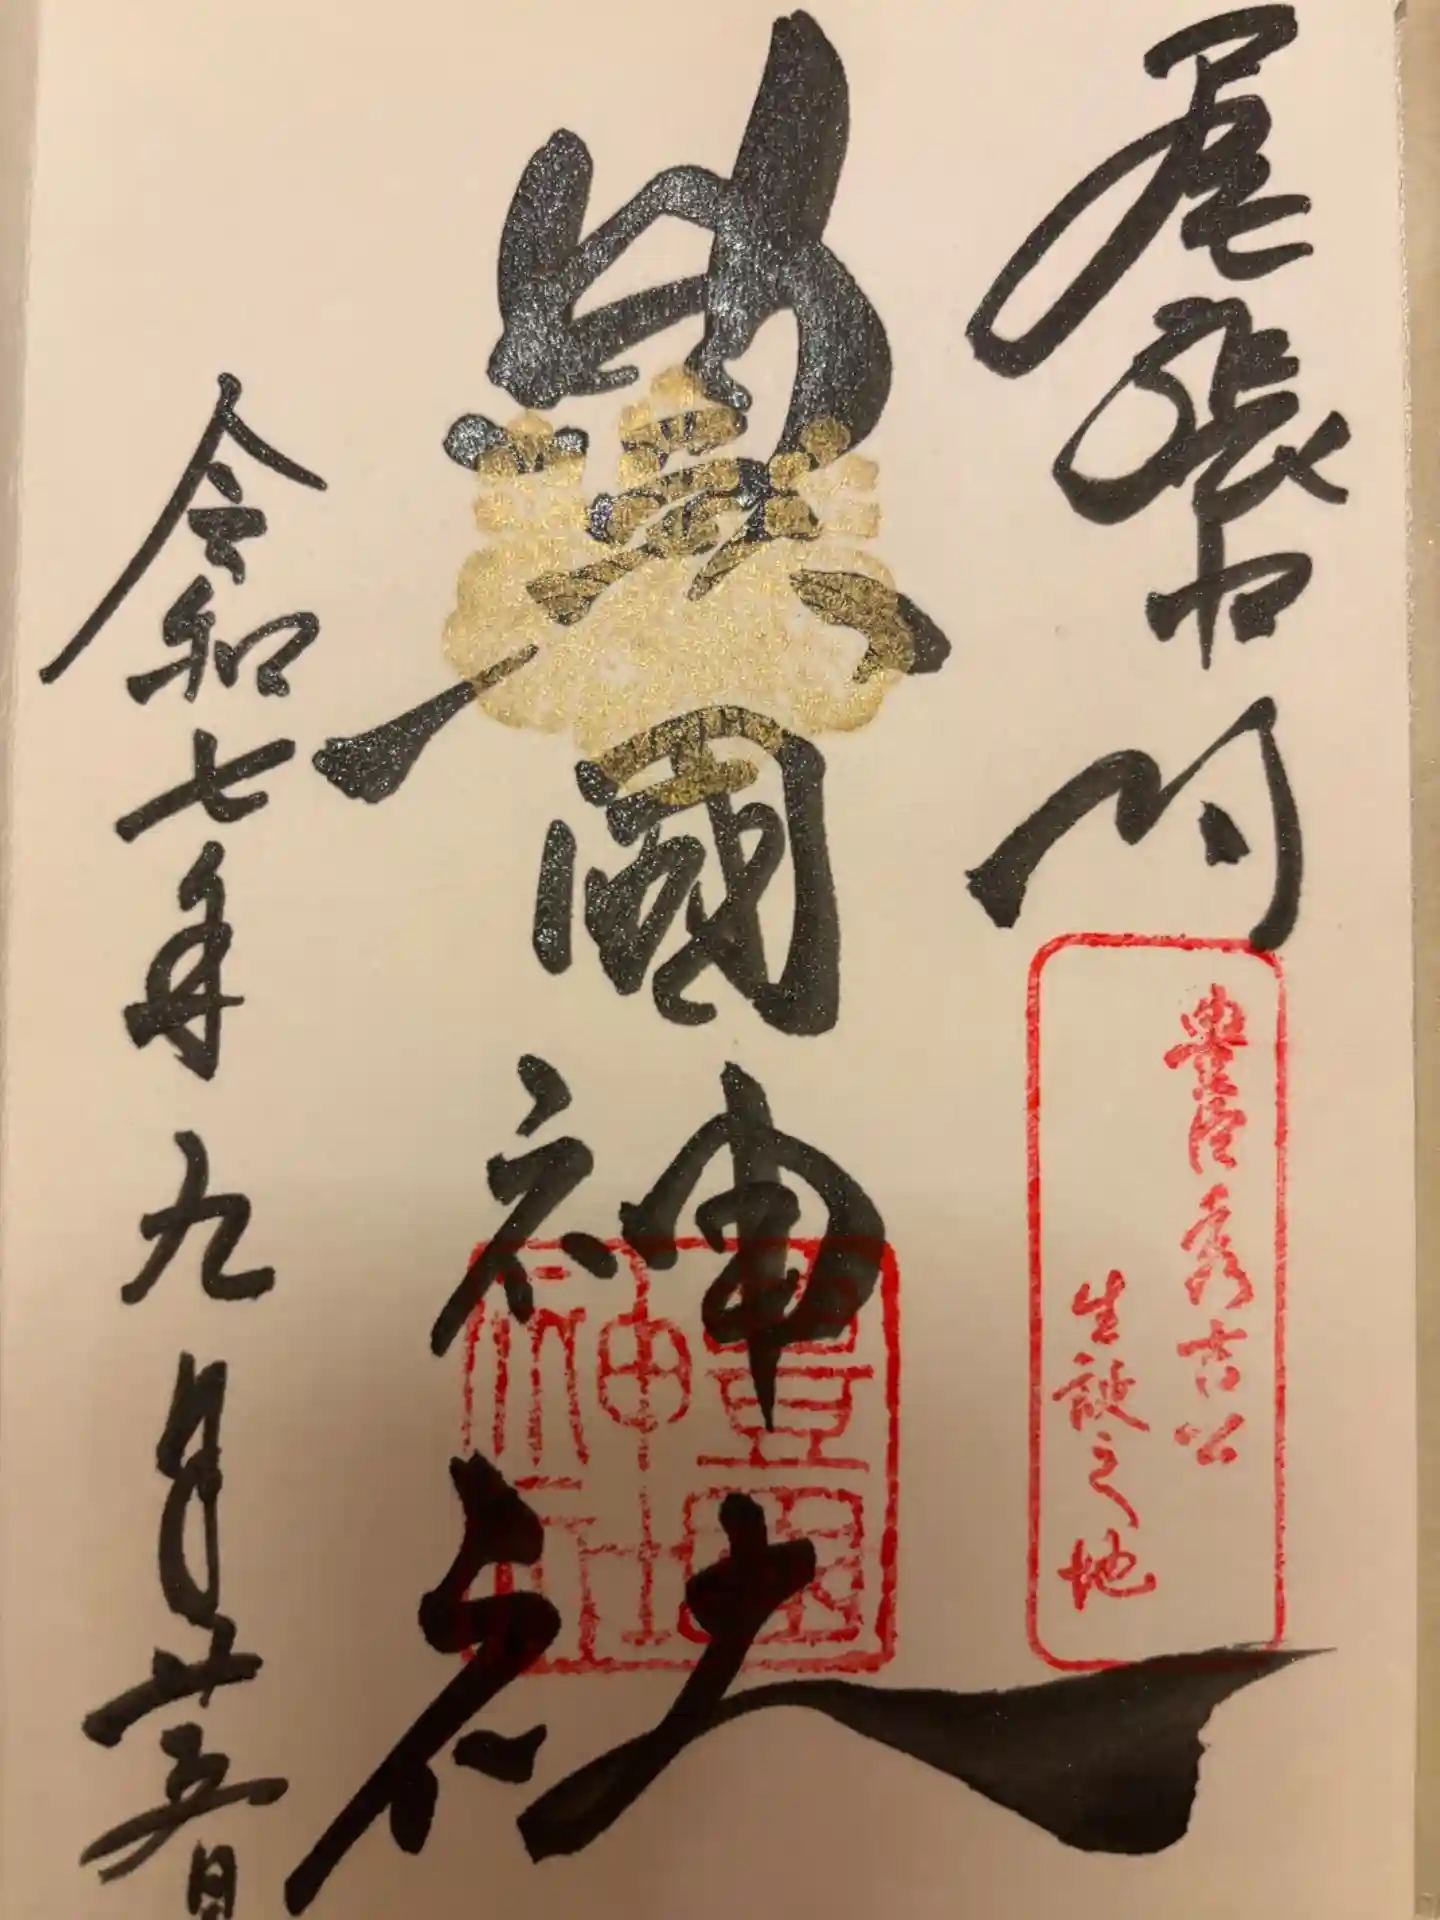 尾張中村
豊臣秀吉公
生誕之地
豊國神社
豊國
神社
令和七年九月廿五日